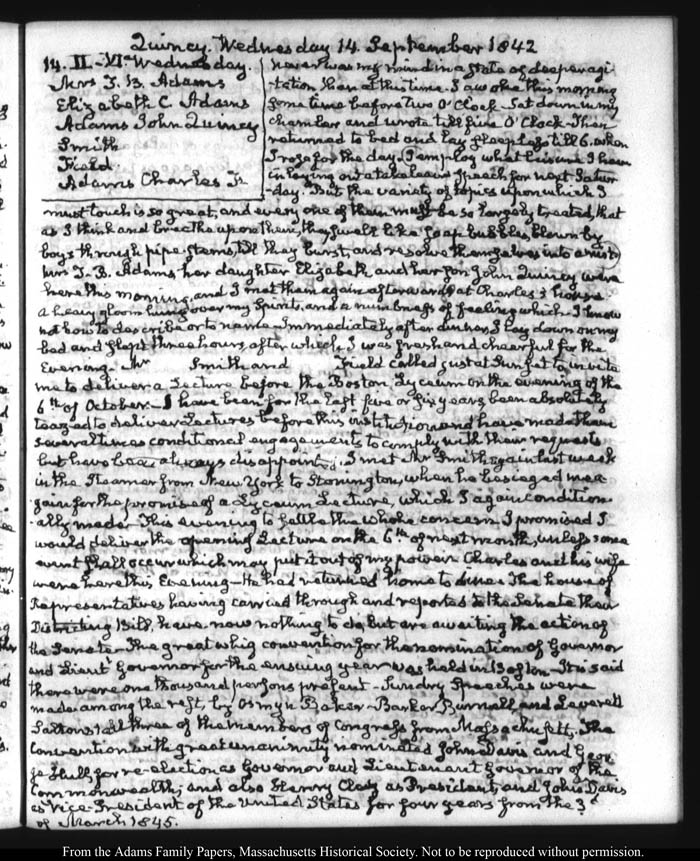 Quincy. Wednesday 14. September 1842
14. II.-VI. Wednesday.
Mrs T. B. Adams
Elizabeth C. Adams
Adams John Quincy
Smith
Field
Adams Charles F.
never was my mind in a state of deeper agi-
-tation than at this time. I awoke this morning
some time before two O'Clock. Sat down in my
chamber and wrote till five O'Clock. Then
returned to bed and lay sleepless till 6. when
I rose for the day. I employ what leisure I have
in laying out a take leave Speech for next Satur-
-day. But the variety of topics upon which I
must touch is so great, and every one of them must be so largely treated, that
as I think and breathe upon them, they swell like soap bubbles blown by
boys through pipe-stems, till they burst, and resolve themselves into a mist.
Mrs T. B. Adams her daughter Elizabeth and her son John Quincy were
here this morning, and I met them again afterwards at Charles's house
a heavy gloom hung over my Spirits, and a numbness of feeling which I know
not how to describe or to name. Immediately after dinner, I lay down on my
bed and slept three hours, after which I was fresh and cheerful for the
Evening. Mr Smith and Field called just at Sunset to invite
me to deliver a Lecture before the Boston Lyceum on the evening of the
6th of October. I have been for the last five or six years been absolutely
teazed to deliver Lectures before this institution and have made them
several times conditional engagements to comply with their requests
but have been always disappointed. I met Mr Smith again last week
in the Steamer from New York to Stonington, when he besieged me a-
gain for the promise of a Lyceum Lecture, which I again condition-
ally made. This evening to settle the whole concern I promised I
would deliver the opening Lecture on the 6th of next month, unless some
event shall occur which may put it out of my power. Charles and his wife
were here this Evening—He had returned home to dine. The house of
Representatives having carried through and reported to the Senate their
Districting Bills, have now nothing to do, but are awaiting the action of
the Senate. The great whig convention for the nomination of Governor
and Lieutt Governor for the ensuing year was held in Boston. It is said
there were one thousand persons present. Sundry Speeches were
made among the rest, by Osmyn Baker. Barker Burnell, and Leverett
Saltonstall three of the members of Congress from Massachusetts. The
Convention with great unanimity nominated John Davis and Geor-
ge Hull for re-election as Governor and Lieutenant Governor of the
Commonwealth; and also Henry Clay as President, and John Davis
as Vice-President of the United States for four years from the 3d
of March 1845.
From the Adams Family Papers, Massachusetts Historical Society. Not to be reproduced without permission.